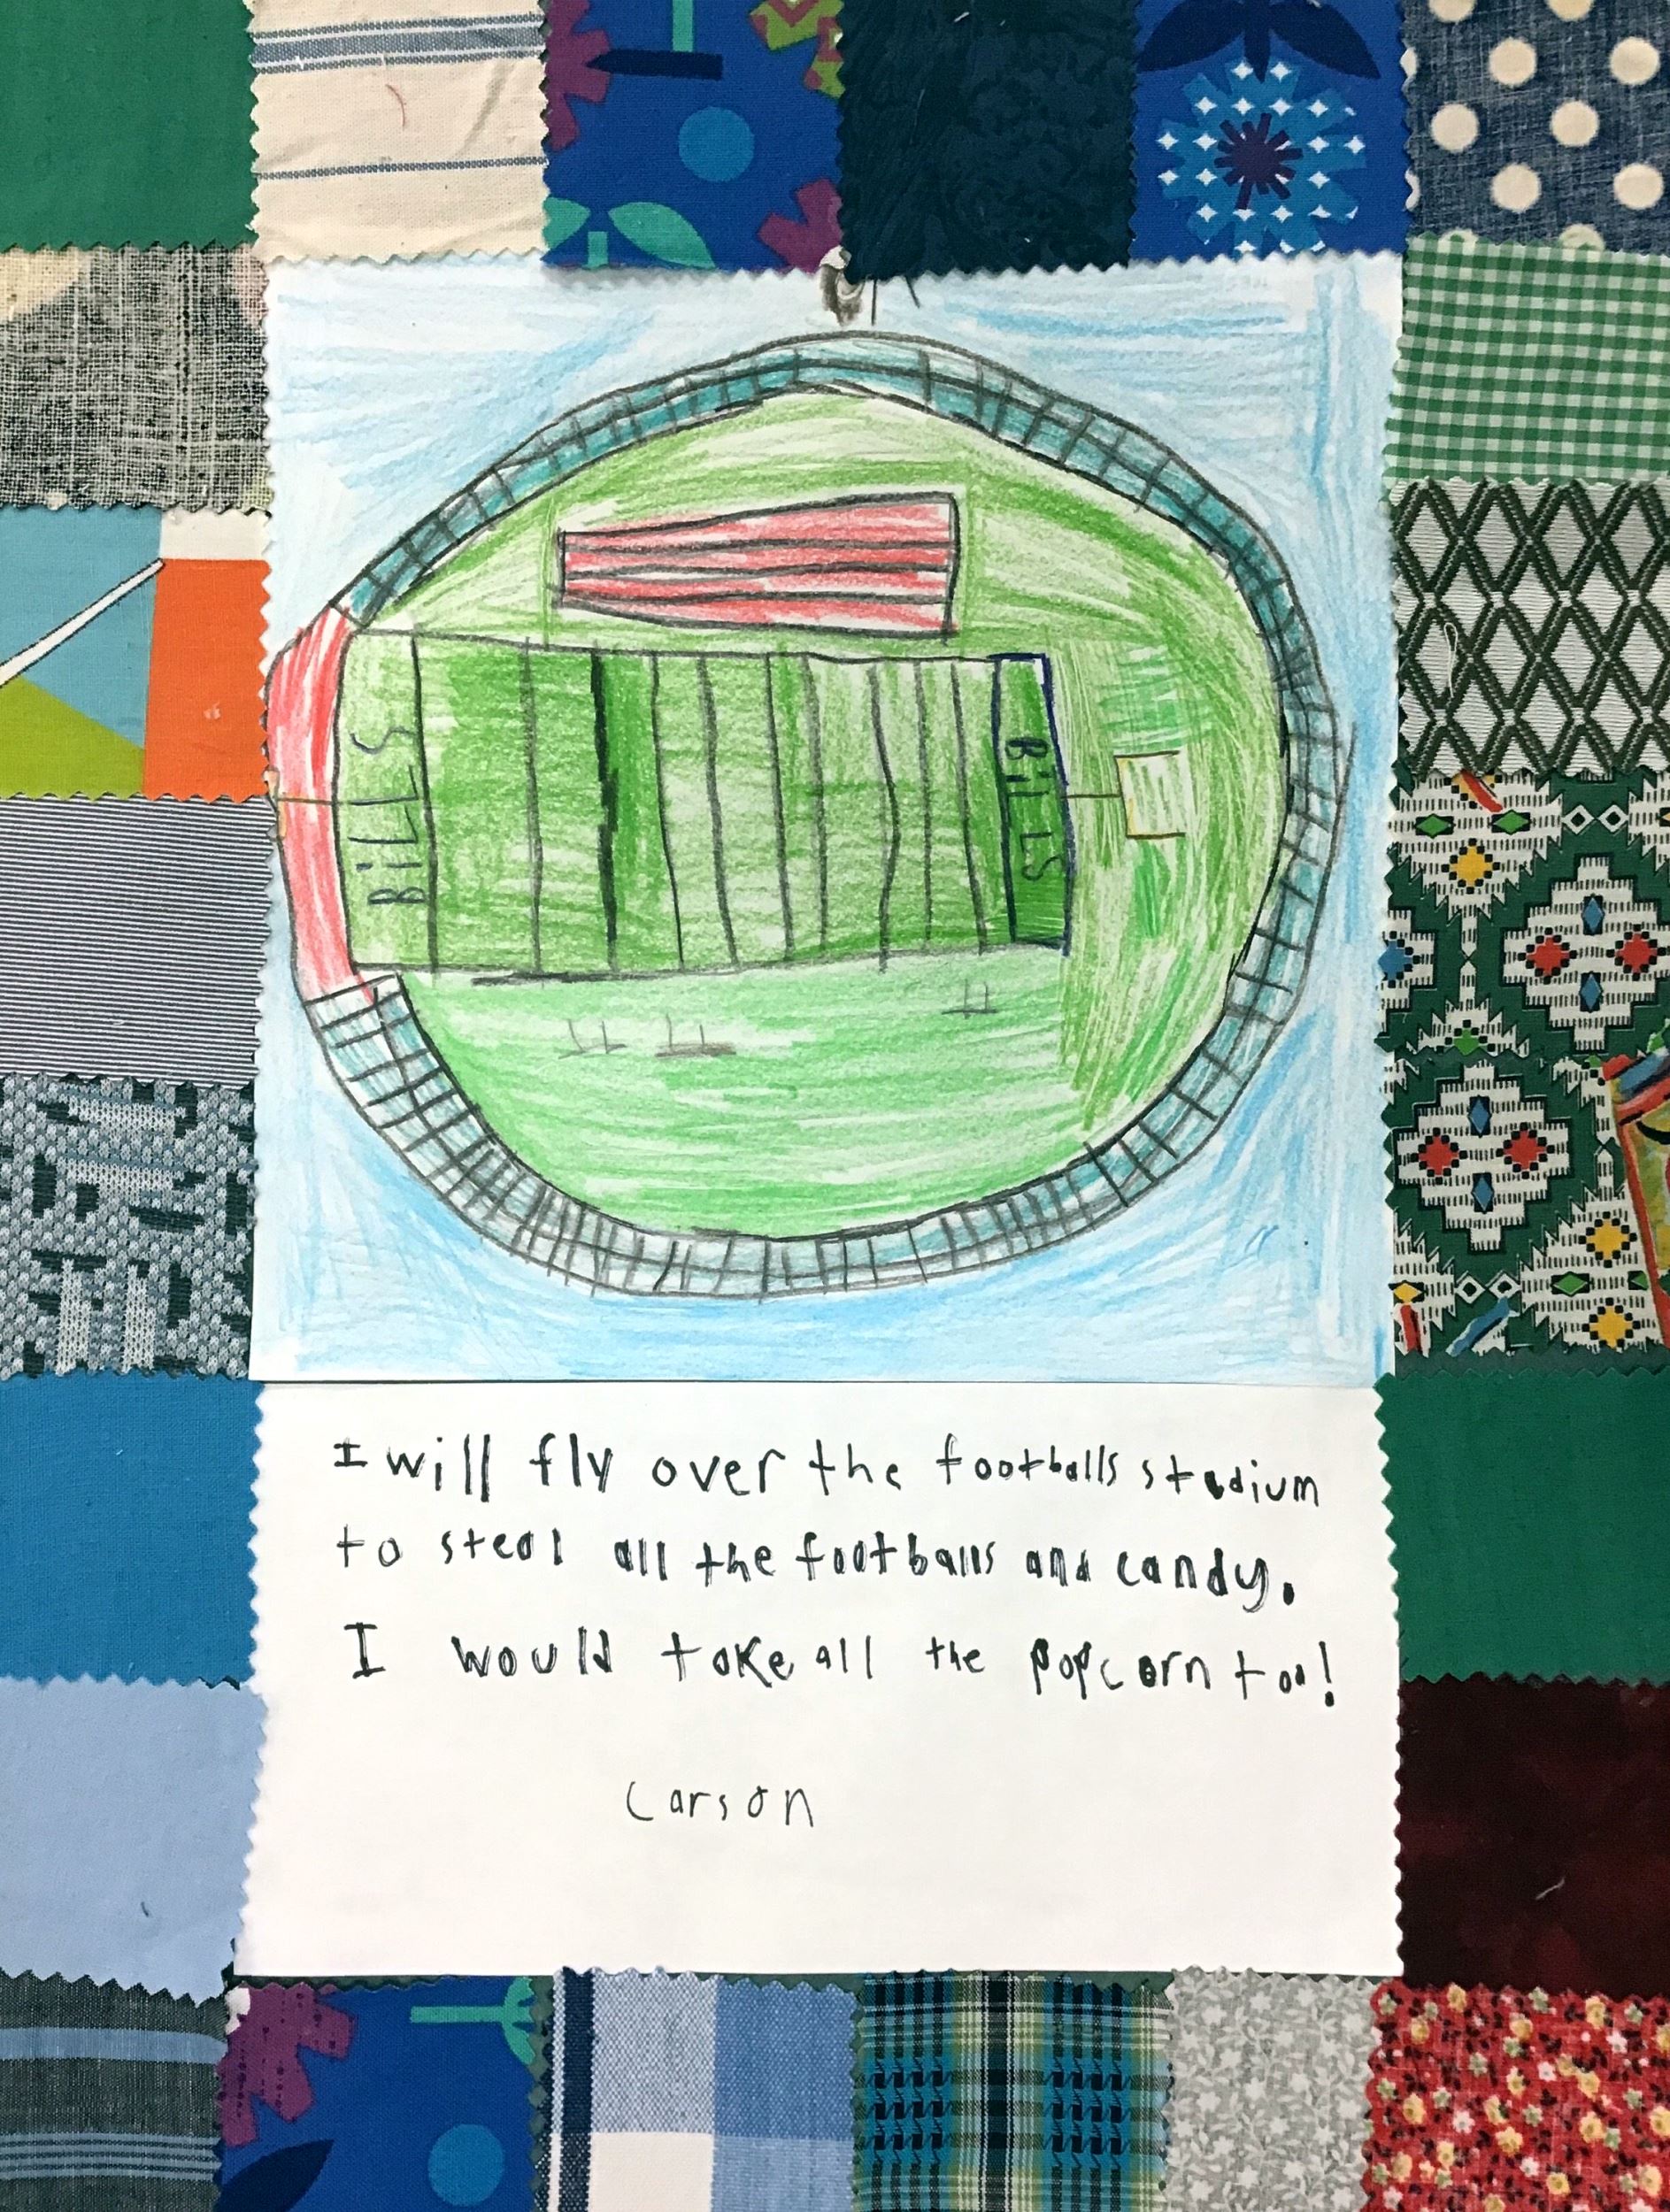 BiLLS
BiLLS
I will fly over the footballs stadium
to steal all the footballs and candy.
I would take all the popcorn too!
Carson